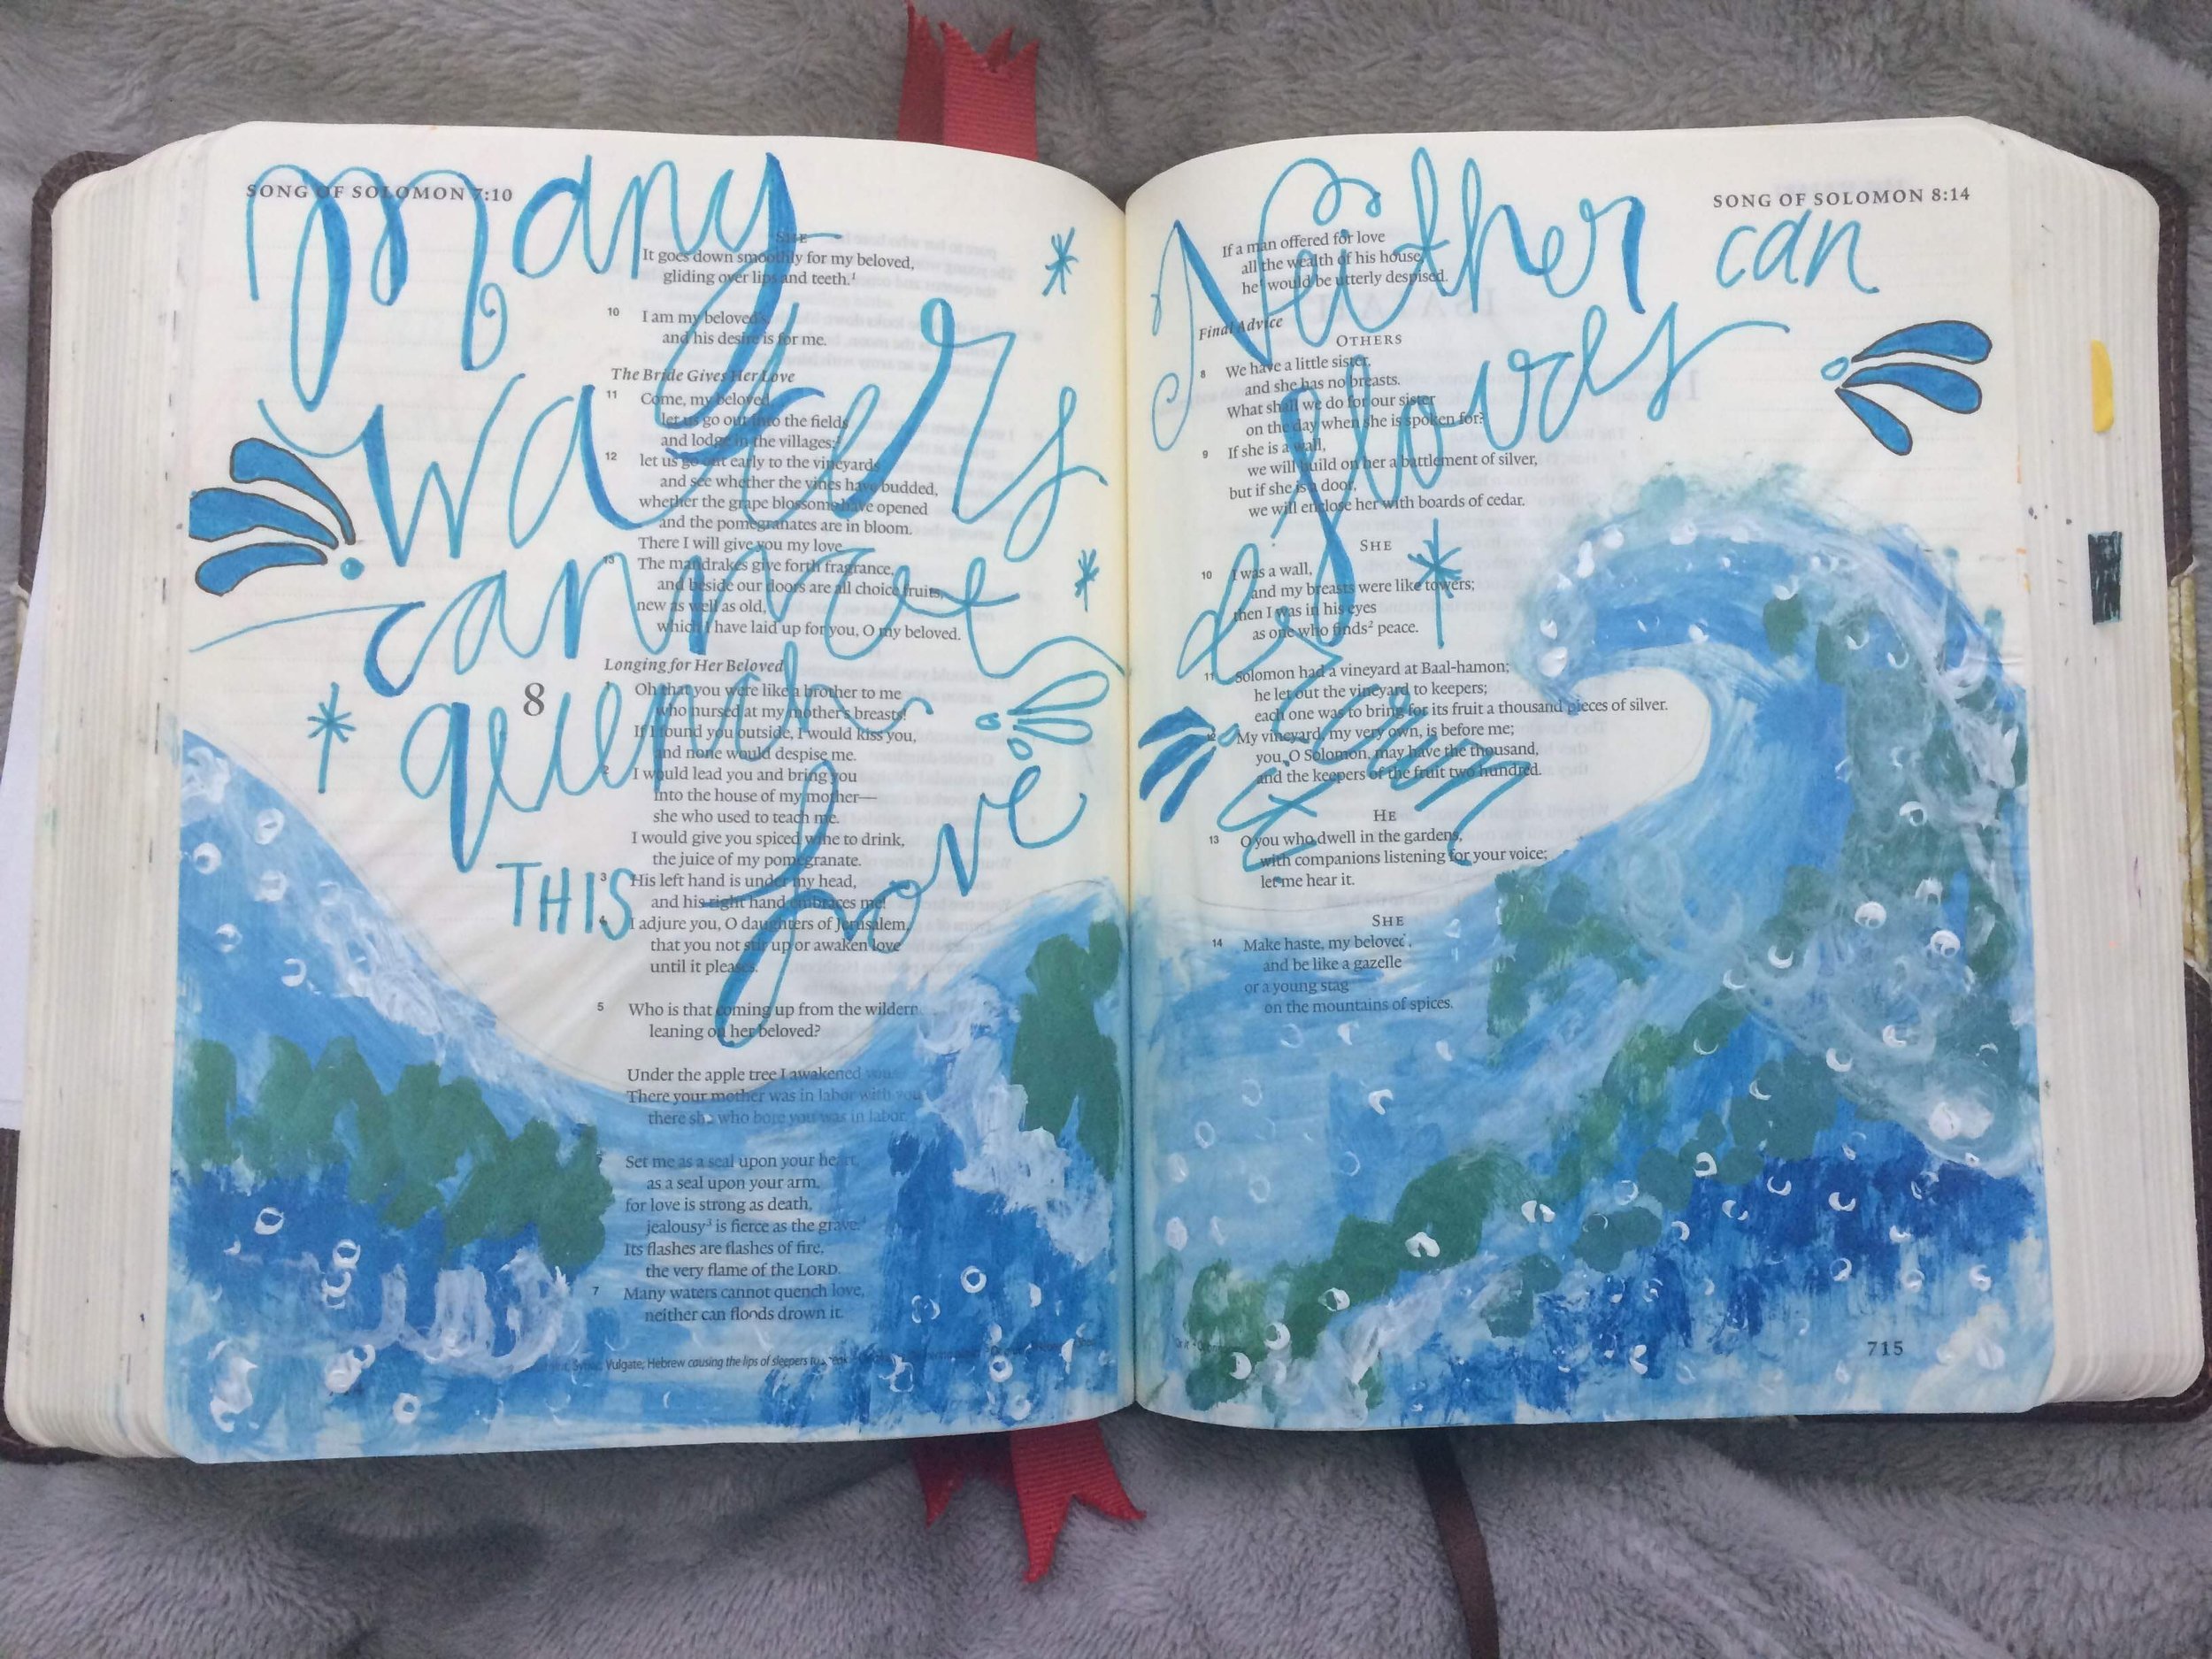 SONG OF SOLOMON 7:10
many
waters
cannot
quench
THIS love
SHE
It goes down smoothly for my beloved,
gliding over lips and teeth.¹
10 I am my beloved's,
and his desire is for me.
The Bride Gives Her Love
11 Come, my beloved,
let us go out into the fields
and lodge in the villages;²
12 let us go out early to the vineyards
and see whether the vines have budded,
whether the grape blossoms have opened
and the pomegranates are in bloom.
There I will give you my love.
13 The mandrakes give forth fragrance,
and beside our doors are all choice fruits,
new as well as old,
which I have laid up for you, O my beloved.
Longing for Her Beloved
8 Oh that you were like a brother to me
who nursed at my mother's breasts!
If I found you outside, I would kiss you,
and none would despise me.
2 I would lead you and bring you
into the house of my mother—
she who used to teach me.
I would give you spiced wine to drink,
the juice of my pomegranate.
3 His left hand is under my head,
and his right hand embraces me!
4 I adjure you, O daughters of Jerusalem,
that you not stir up or awaken love
until it pleases.
5 Who is that coming up from the wildern
leaning on her beloved?
Under the apple tree I awakened you.
There your mother was in labor with you
there she who bore you was in labor.
Set me as a seal upon your heart,
as a seal upon your arm,
for love is strong as death,
jealousy³ is fierce as the grave.
Its flashes are flashes of fire,
the very flame of the LORD.
7 Many waters cannot quench love,
neither can floods drown it.
Vulgate; Hebrew causing the lips of sleepers to
SONG OF SOLOMON 8:14
Neither can
floods
If a man offered for love
all the wealth of his house,
he would be utterly despised.
Final Advice
OTHERS
8 We have a little sister,
and she has no breasts.
What shall we do for our sister
on the day when she is spoken for?
9 If she is a wall,
we will build on her a battlement of silver,
but if she is a door,
we will enclose her with boards of cedar.
SHE
10 I was a wall,
and my breasts were like towers;
then I was in his eyes
as one who finds² peace.
11 Solomon had a vineyard at Baal-hamon;
he let out the vineyard to keepers;
each one was to bring for its fruit a thousand pieces of silver.
12 My vineyard, my very own, is before me;
you, O Solomon, may have the thousand,
and the keepers of the fruit two hundred.
HE
13 O you who dwell in the gardens,
with companions listening for your voice;
let me hear it.
SHE
14 Make haste, my beloved,
and be like a gazelle
or a young stag
on the mountains of spices.
715